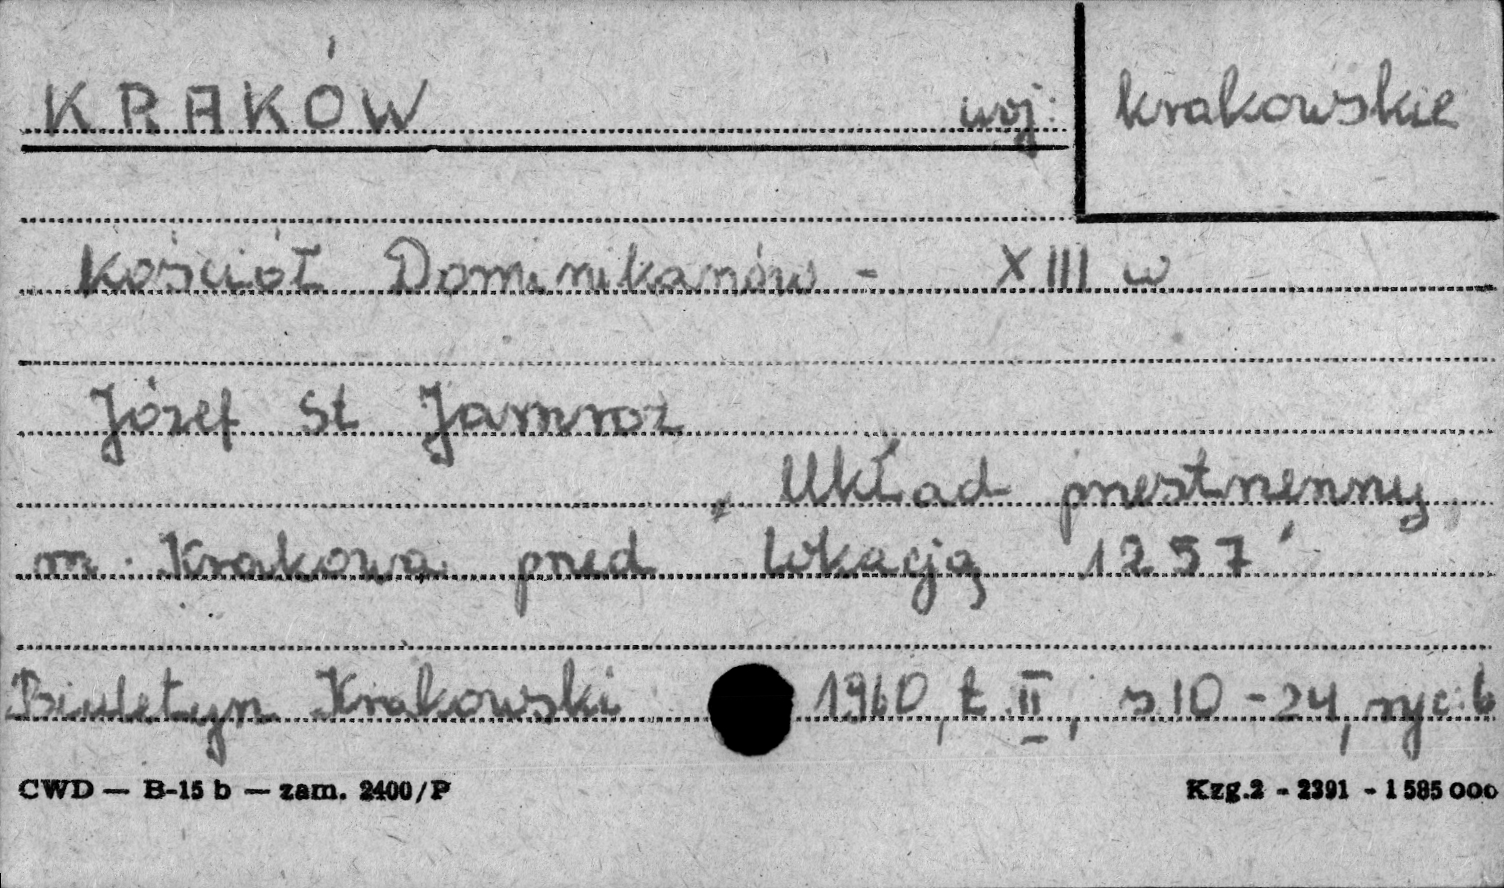 KRAKÓW woj: krakowskie
Kościół Dominikanów - XIII w
Józef St Jamroz
„Układ przestrzenny
m. Krakowa przed lokacją 1257"
Biuletyn Krakowski 1960, t. II, s. 10 - 24, ryc: 6
CWD — B-15 b — zam. 2400/P Kzg.2 - 2391 - 1 585 000